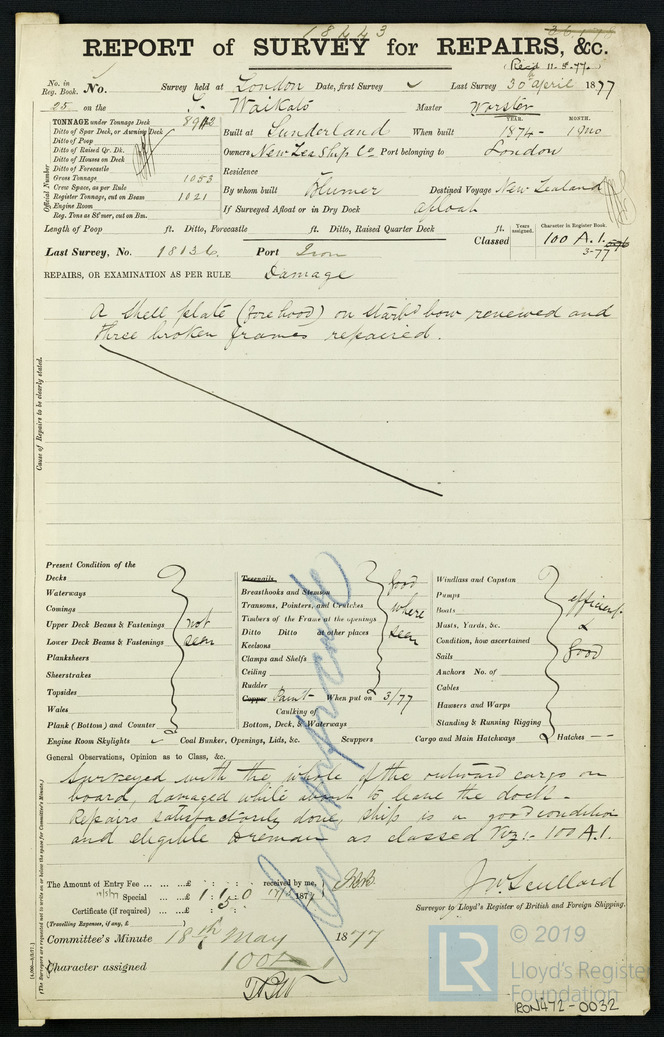 18443
REPORT of SURVEY for REPAIRS, &c.
Rec'd 11-5-77
No. in Reg. Book. No. Survey held at London Date, first Survey Last Survey 30 April 1877
25 on the Waikato Master Worster
TONNAGE under Tonnage Deck
Ditto of Spar Deck, or Awning Deck
Ditto of Poop
Ditto of Raised Qr. Dk.
Ditto of Houses on Deck
Ditto of Forecastle
Gross Tonnage 1053
Crew Space, as per Rule
Register Tonnage, cut on Beam 1021
Engine Room
Reg. Tons as St'mer, cut on Bm.
Official Number
YEAR. MONTH.
Built at Sunderland When built 1874 - 1 mo
Owners New Zea Ship Co Port belonging to London
Residence
By whom built Blumer Destined Voyage New Zealand
If Surveyed Afloat or in Dry Dock afloat
Length of Poop ft. Ditto, Forecastle ft. Ditto, Raised Quarter Deck ft.
Classed Years assigned. Character in Register Book. 100 A.1.
3-77
Last Survey, No. 18136 Port Iron
REPAIRS, OR EXAMINATION AS PER RULE Damage
A shell plate (fore hood) on starbd bow renewed and
three broken frames repaired.
Cause of Repairs to be clearly stated.
Present Condition of the
Decks
Waterways
Comings
Upper Deck Beams & Fastenings not
Lower Deck Beams & Fastenings seen
Planksheers
Sheerstrakes
Topsides
Wales
Plank (Bottom) and Counter
Treenails good
Breasthooks and Stemson
Transoms, Pointers, and Crutches where
Timbers of the Frame at the openings
Ditto Ditto at other places seen
Keelsons
Clamps and Shelfs
Ceiling
Rudder
Copper Paint When put on 3/77
Caulking of
Bottom, Deck, & Waterways
Windlass and Capstan
Pumps efficient
Boats
Masts, Yards, &c. &
Condition, how ascertained
Sails good
Anchors No. of
Cables
Hawsers and Warps
Standing & Running Rigging
Engine Room Skylights Coal Bunker, Openings, Lids, &c. Scuppers Cargo and Main Hatchways Hatches
General Observations, Opinion as to Class, &c.
Surveyed with the whole of the outward cargo on
board, damaged while about to leave the dock -
Repairs satisfactorily done, ship is in good condition
and eligible to remain as classed viz:- 100 A.1.
The Amount of Entry Fee ... ... ...£ : : received by me,
Special ... ...£ 1 : 1 : 0 1877
Certificate (if required) ... ...£ : 5 :
(Travelling Expenses, if any, £ )
J W Scullard
Surveyor to Lloyd's Register of British and Foreign Shipping.
Committee's Minute 18th May 1877
Character assigned 100 A 1
(The Surveyors are requested not to write on or below the space for Committee's Minute.)
© 2019
LR
Lloyd's Register
Foundation
IRON472-0032